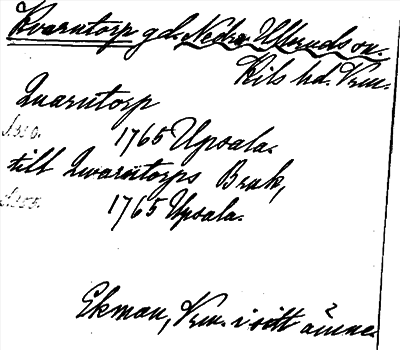 Kvarntorp gd. Nedre Ulleruds sn.
Kils hd. Vrm.
Qvarntorp
S. 310. 1765 Upsala.
till Qvarntorps Bruk,
1765 Upsala.
Ekman, Vrm. i sitt ämne.